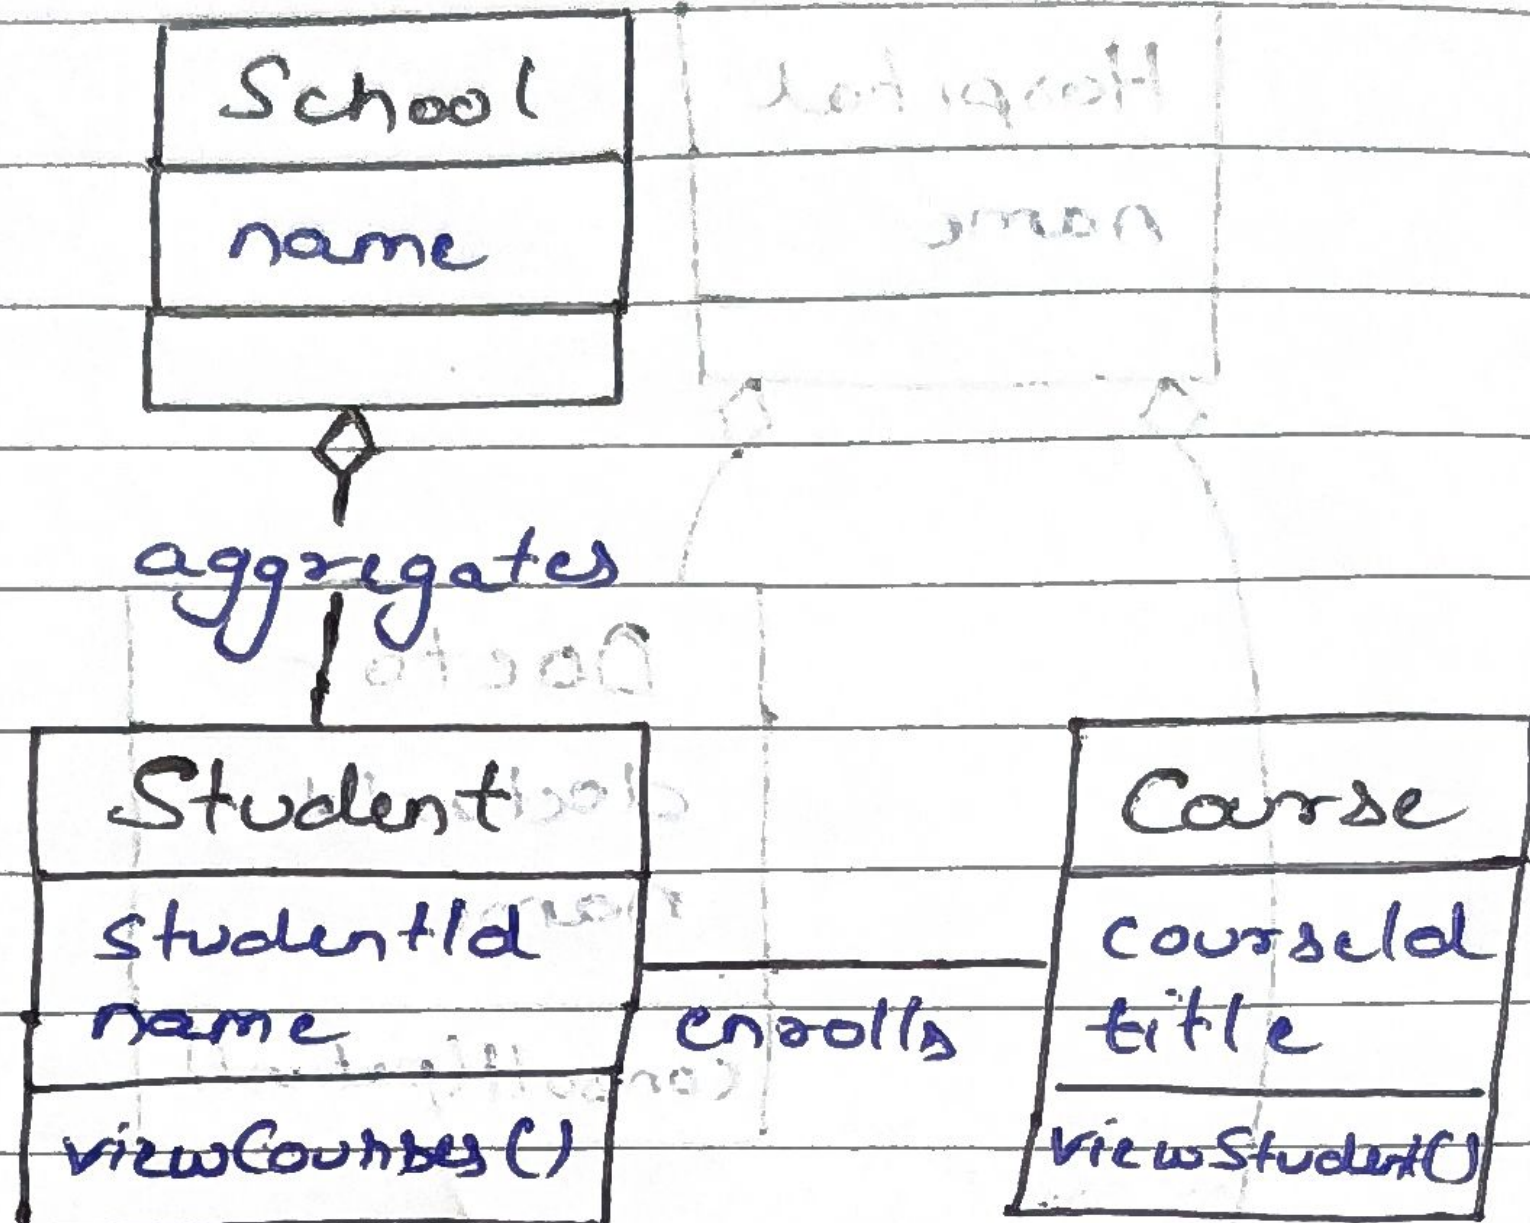 School
name
aggregates
Student
studentId
name
viewCourses()
enrolls
Course
courseId
title
viewStudent()
Hospital
name
Doctor